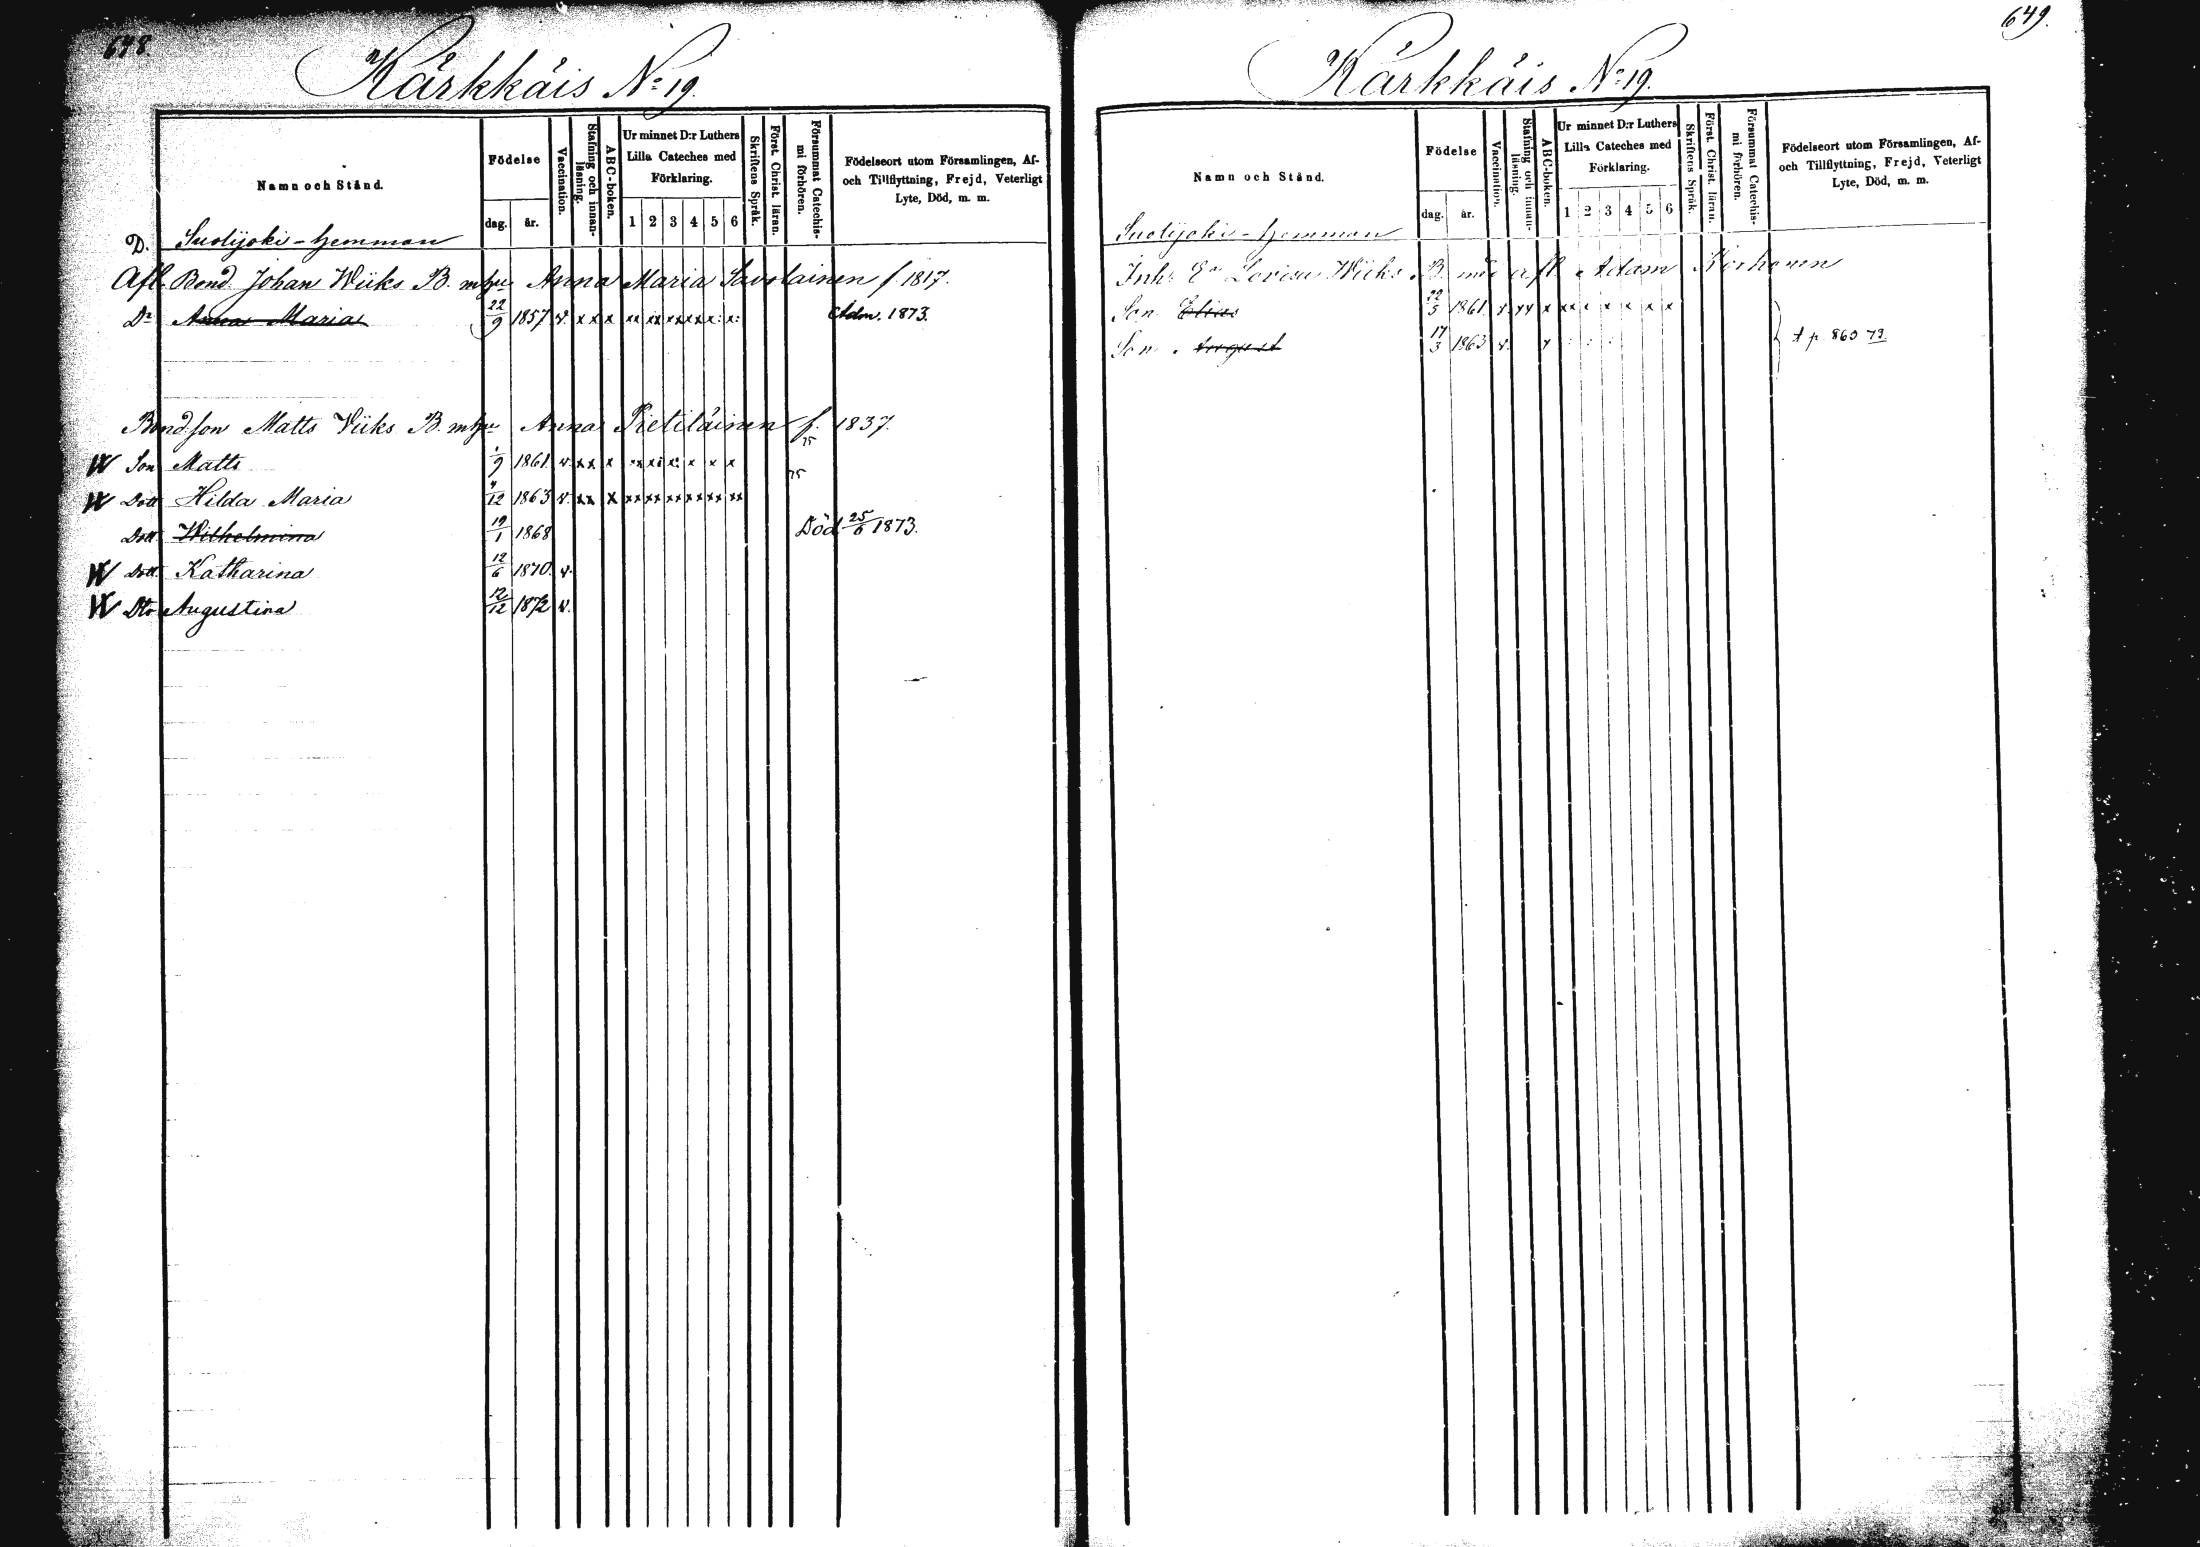 648.
Kärkkäis No 19.
Namn och Stånd.
Födelse
dag.
år.
Vaccination.
Stafning och innan-
läsning.
ABC-boken.
Ur minnet D:r Luthers
Lilla Cateches med
Förklaring.
1 2 3 4 5 6
Skriftens Språk.
Först. Christ. läran.
Försummat Catechis-
mi förhören.
Födelseort utom Församlingen, Af-
och Tillflyttning, Frejd, Veterligt
Lyte, Död, m. m.
D. Suolijoki-hemman
Afl. Bond. Johan Wiiks B. m hu Anna Maria Savolainen f 1817.
Dr Anna Maria 22/9 1857 v. x x x xx xx xx xx x: x: Adm. 1873.
Bondson Matts Wiiks B. m hu Anna Pietiläinen f. 1837.
75
W Son Matts /9 1861 v. xx x
75
W Dott Hilda Maria /12 1863 v. xx x xx xx xx xx xx xx
Dott. Wilhelmina 19/1 1868 Död 25/6 1873.
W Dott. Katharina 12/6 1870. v.
W Dto Augustina 12/12 1872 v.
649.
Kärkkäis No 19.
Namn och Stånd.
Födelse
dag.
år.
Vaccination.
Stafning och innan-
läsning.
ABC-boken.
Ur minnet D:r Luthers
Lilla Cateches med
Förklaring.
1 2 3 4 5 6
Skriftens Språk.
Först. Christ. läran.
Försummat Catechis-
mi förhören.
Födelseort utom Församlingen, Af-
och Tillflyttning, Frejd, Veterligt
Lyte, Död, m. m.
Suolijoki-hemman
Inh: Ea Lovisa Wiiks B. med afl. Adam Korhonen
Son Elias /5 1861. v. xx x xx x x x x x
Son August 17/3 1863 v. x t p. 863 73